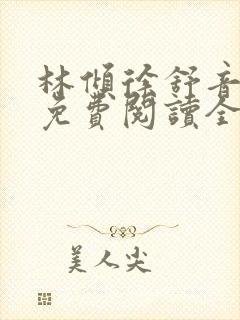 林傾徐舒音
免費閱讀全
美人尖